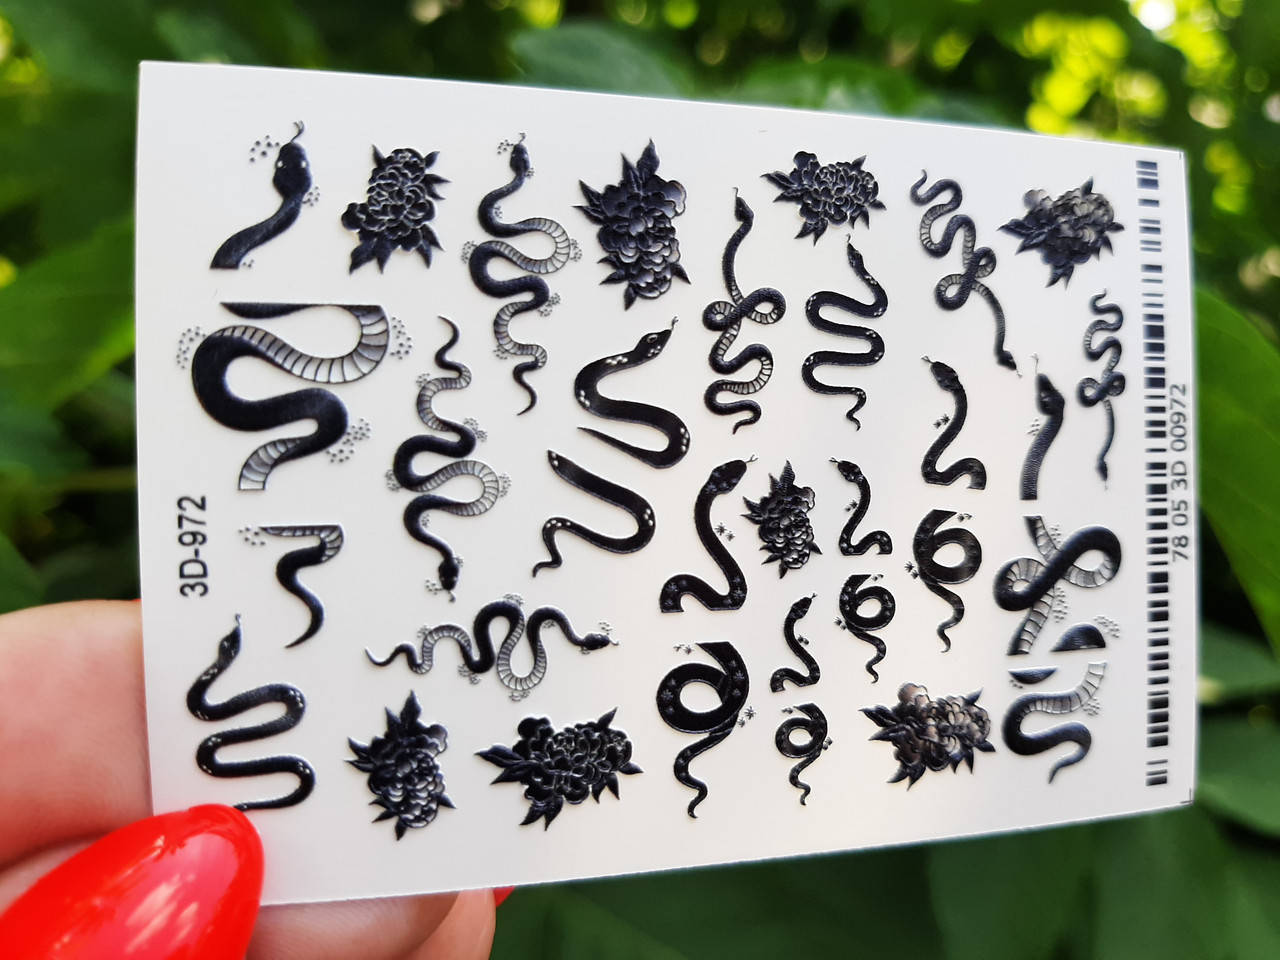 3D-972
78 05 3D 00972